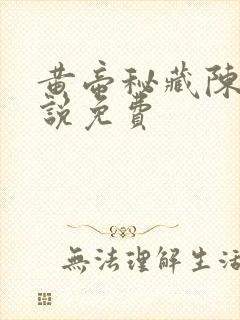 黄帝秘藏陳
說免費
無法理解生活